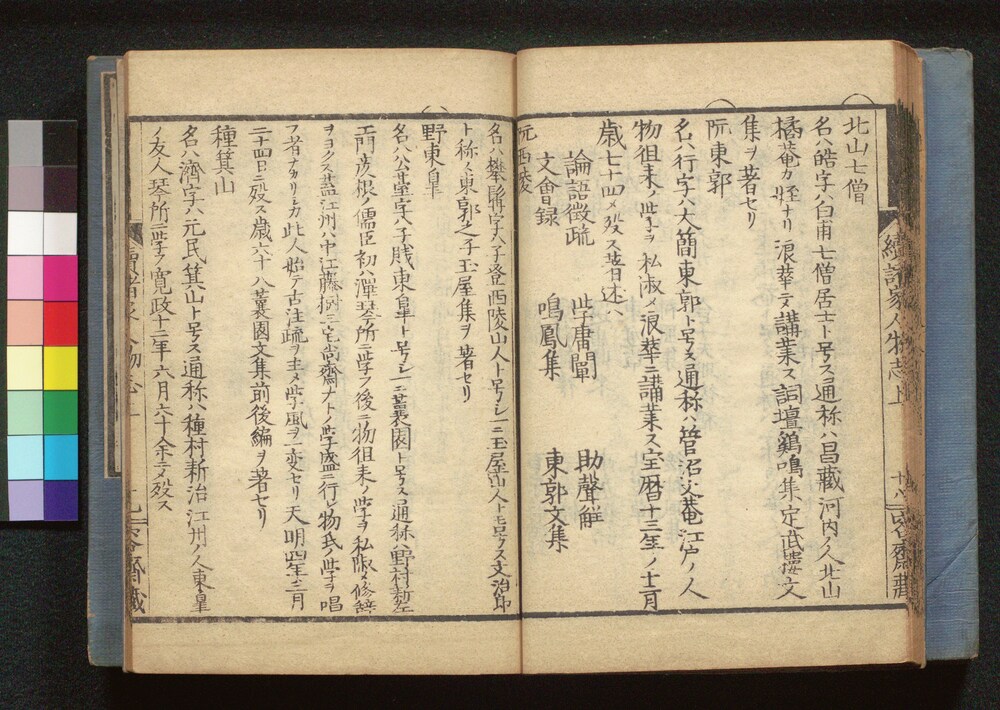 北山七僧
名ハ皓字ハ白甫七僧居士ト号ス通称ハ昌蔵河内ノ人北山
橘菴カ姪ナリ浪華テ講業ス詞壇鷄鳴集定武楼文
集ヲ著セリ
阮東郭
名ハ行字ハ大簡東郭ト号ス通称ハ菅沼父菴江戸ノ人
物徂来ノ学ヲ私淑メ浪華ニ講業ス宝暦十三年ノ十二月
歳七十四メ歿ス著述ハ
論語徴疏 学庸闡 助聲解
文會録 鳴鳳集 東郭文集
阮西陵
名ハ攀䮾字ハ子登西陵山人ト号シ一ニ玉屋山人トモ号ス文治郎
ト称ス東郭之子玉屋集ヲ著セリ
野東皐
名ハ公臺字ハ子賎東皐ト号シ一ニ蓑園ト号ス通称ハ野村新左
エ門彦根ノ儒臣初ハ澤琴所ニ学フ後ニ物徂来ノ学ヲ私淑メ修辞
ヲヨクス蓋江州ハ中江藤樹三宅尚齋ナトノ学盛ニ行レ物氏ノ学ヲ唱
フ者ナカリシカ此人始テ古注疏ヲ主メ学風ヲ一変セリ天明四年ノ三月
二十四日ニ歿ス歳六十八蓑園文集前後編ヲ著セリ
種箕山
名ハ濟字ハ元民箕山ト号ス通称ハ種村新治江州ノ人東皐
ノ友人琴所ニ学フ寛政十二年六月六十余ニメ歿ス
續諸家人物志上